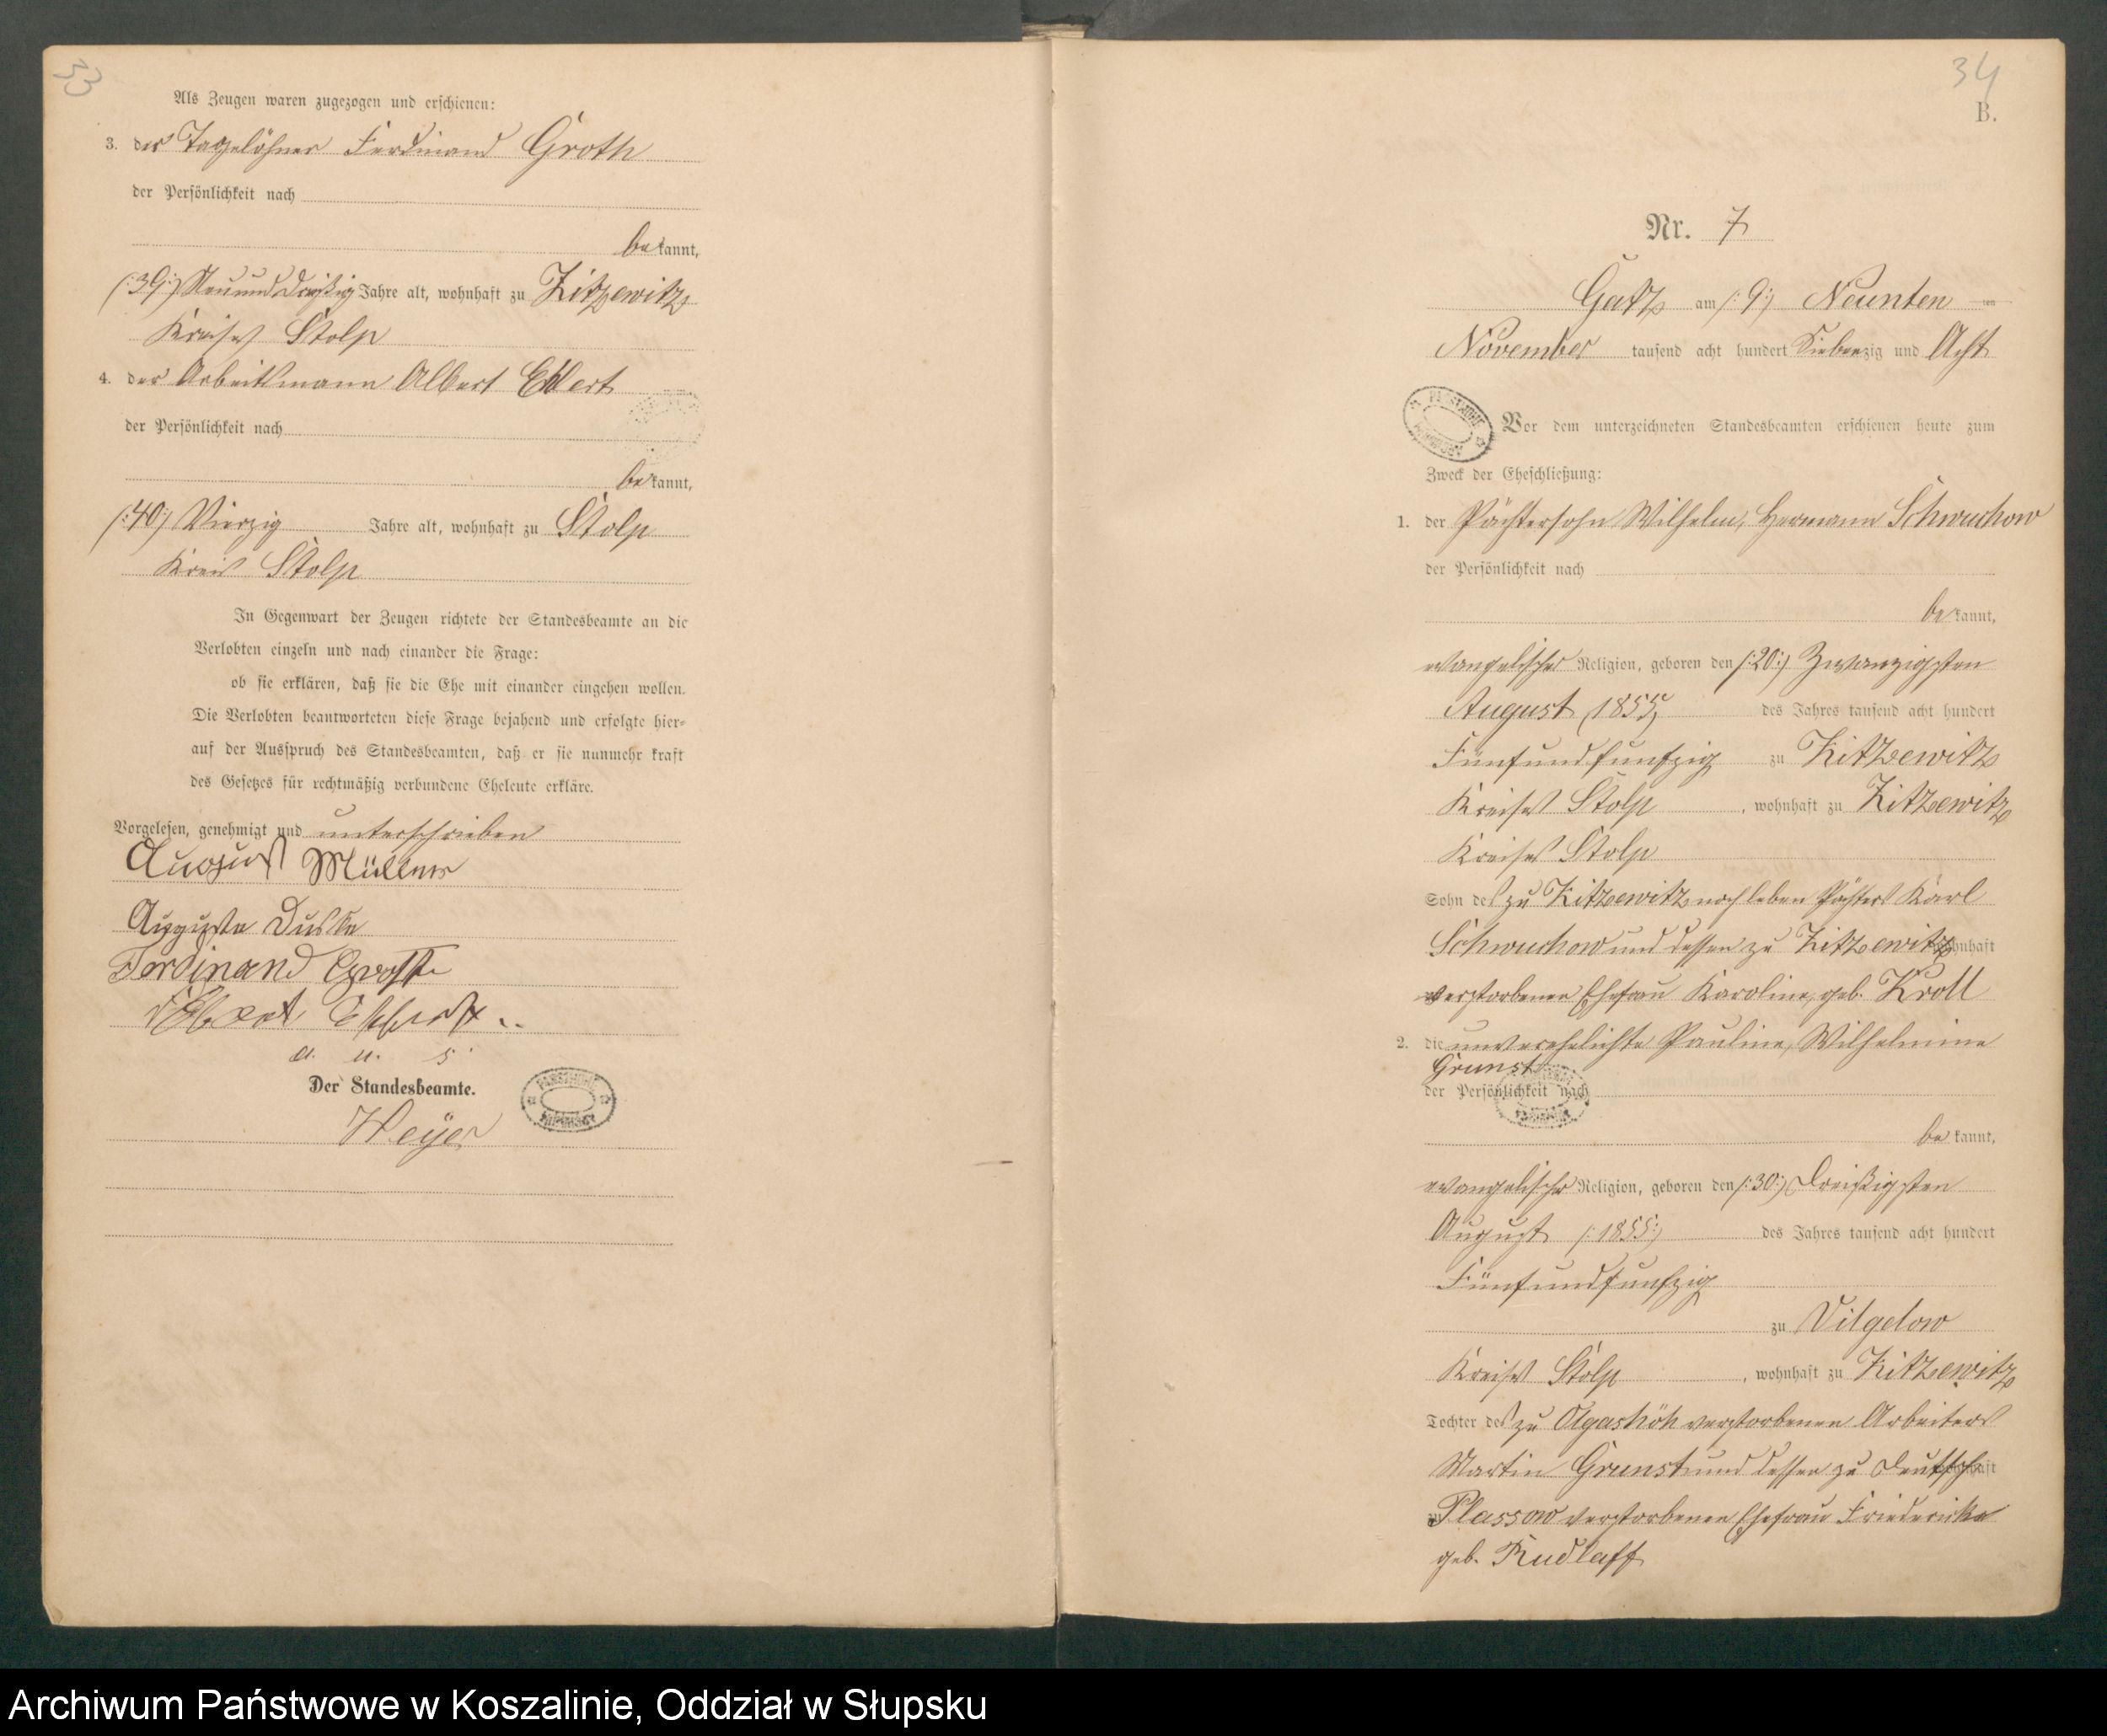 33
Als Zeugen waren zugezogen und erschienen:
3. der Tagelöhner Ferdinand Groth
der Persönlichkeit nach
bekannt,
(:39:) Neununddreißig Jahre alt, wohnhaft zu Zitzewitz
Kreises Stolp
4. der Arbeitsmann Albert Ehlert
der Persönlichkeit nach
bekannt,
(:40:) Vierzig Jahre alt, wohnhaft zu Stolp
Kreis Stolp
In Gegenwart der Zeugen richtete der Standesbeamte an die
Verlobten einzeln und nach einander die Frage:
ob sie erklären, daß sie die Ehe mit einander eingehen wollen.
Die Verlobten beantworteten diese Frage bejahend und erfolgte hier-
auf der Ausspruch des Standesbeamten, daß er sie nunmehr kraft
des Gesetzes für rechtmäßig verbundene Eheleute erkläre.
Vorgelesen, genehmigt und unterschrieben
August Müller
Auguste Duske
Ferdinand Groth
Albert Ehlert
a. u. s.
Der Standesbeamte.
Weyer
34
B.
Nr. 7
Gatz am (:9:) Neunten ten
November tausend acht hundert Siebenzig und Acht
Vor dem unterzeichneten Standesbeamten erschienen heute zum
Zweck der Eheschließung:
1. der Pächtersohn Wilhelm, Hermann Schwuchow
der Persönlichkeit nach
bekannt,
evangelischer Religion, geboren den (:20:) Zwanzigsten
August (1855) des Jahres tausend acht hundert
Fünfundfunfzig zu Zitzewitz
Kreises Stolp, wohnhaft zu Zitzewitz
Kreises Stolp
Sohn des zu Zitzewitz noch leben Pächters Karl
Schwuchow und dessen zu Zitzewitz wohnhaft
verstorbenen Ehefrau Karoline, geb. Kroll
2. die unverehelichte Pauline, Wilhelmine
Grunst
der Persönlichkeit nach
bekannt,
evangelischer Religion, geboren den (:30:) Dreißigsten
August (:1855:) des Jahres tausend acht hundert
Fünfundfunfzig
zu Vilgelow
Kreises Stolp, wohnhaft zu Zitzewitz
Tochter des zu Olgashöh verstorbenen Arbeiters
Martin Grunst und dessen zu Deutsch wohnhaft
zu Plassow verstorbenen Ehefrau Friederike
geb. Rudlaff
Archiwum Państwowe w Koszalinie, Oddział w Słupsku